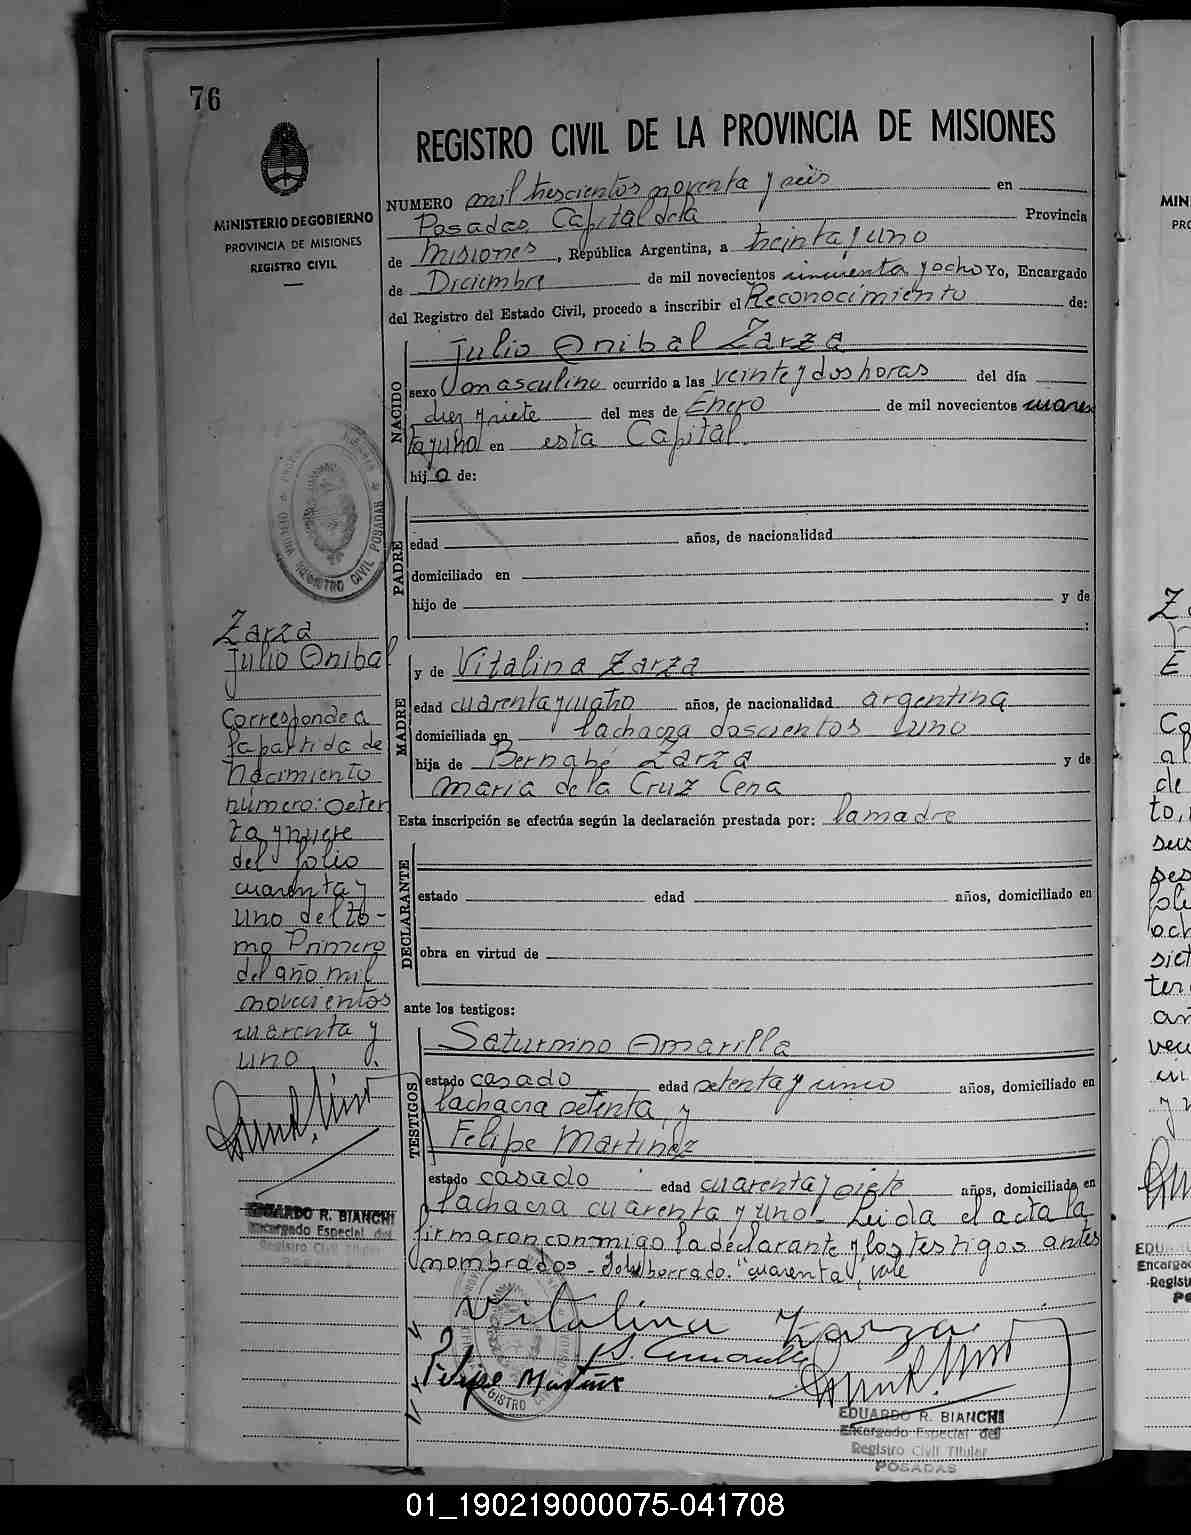 76
REGISTRO CIVIL DE LA PROVINCIA DE MISIONES
MINISTERIO DE GOBIERNO
PROVINCIA DE MISIONES
REGISTRO CIVIL
NUMERO mil trescientos noventa y seis en
Posadas Capital de la Provincia
de Misiones, República Argentina, a treinta y uno
de Diciembre de mil novecientos cincuenta y ocho Yo, Encargado
del Registro del Estado Civil, procedo a inscribir el Reconocimiento de:
NACIDO
Julio Anibal Zarza
sexo masculino ocurrido a las veinte y dos horas del día
diez y siete del mes de Enero de mil novecientos cuaren
ta y uno en esta Capital.
hijo de:
PADRE
edad años, de nacionalidad
domiciliado en
hijo de y de
:
MADRE
y de Vitalina Zarza
edad cuarenta y cuatro años, de nacionalidad argentina
domiciliada en la chacra doscientos uno
hija de Bernabé Zarza y de
Maria de la Cruz Cena
Esta inscripción se efectúa según la declaración prestada por: la madre
DECLARANTE
estado edad años, domiciliado en
obra en virtud de
ante los testigos:
TESTIGOS
Saturnino Amarilla
estado casado edad setenta y cinco años, domiciliado en
la chacra setenta y
Felipe Martinez
estado casado edad cuarenta y siete años, domiciliado en
la chacra cuarenta y uno. Leida el acta la
firmaron conmigo la declarante y los testigos antes
nombrados. borrado: "cuarenta", vale
Vitalina Zarza
Felipe Martinez
EDUARDO R. BIANCHI
Encargado Especial del
Registro Civil Titular
POSADAS
Zarza
Julio Anibal
Corresponde a
la partida de
nacimiento
número: seten
ta y nueve
del folio
cuarenta y
uno del to-
mo Primero
del año mil
novecientos
cuarenta y
uno
EDUARDO R. BIANCHI
Encargado Especial del
Registro Civil Titular
POSADAS
REGISTRO CIVIL POSADAS
01_190219000075-041708